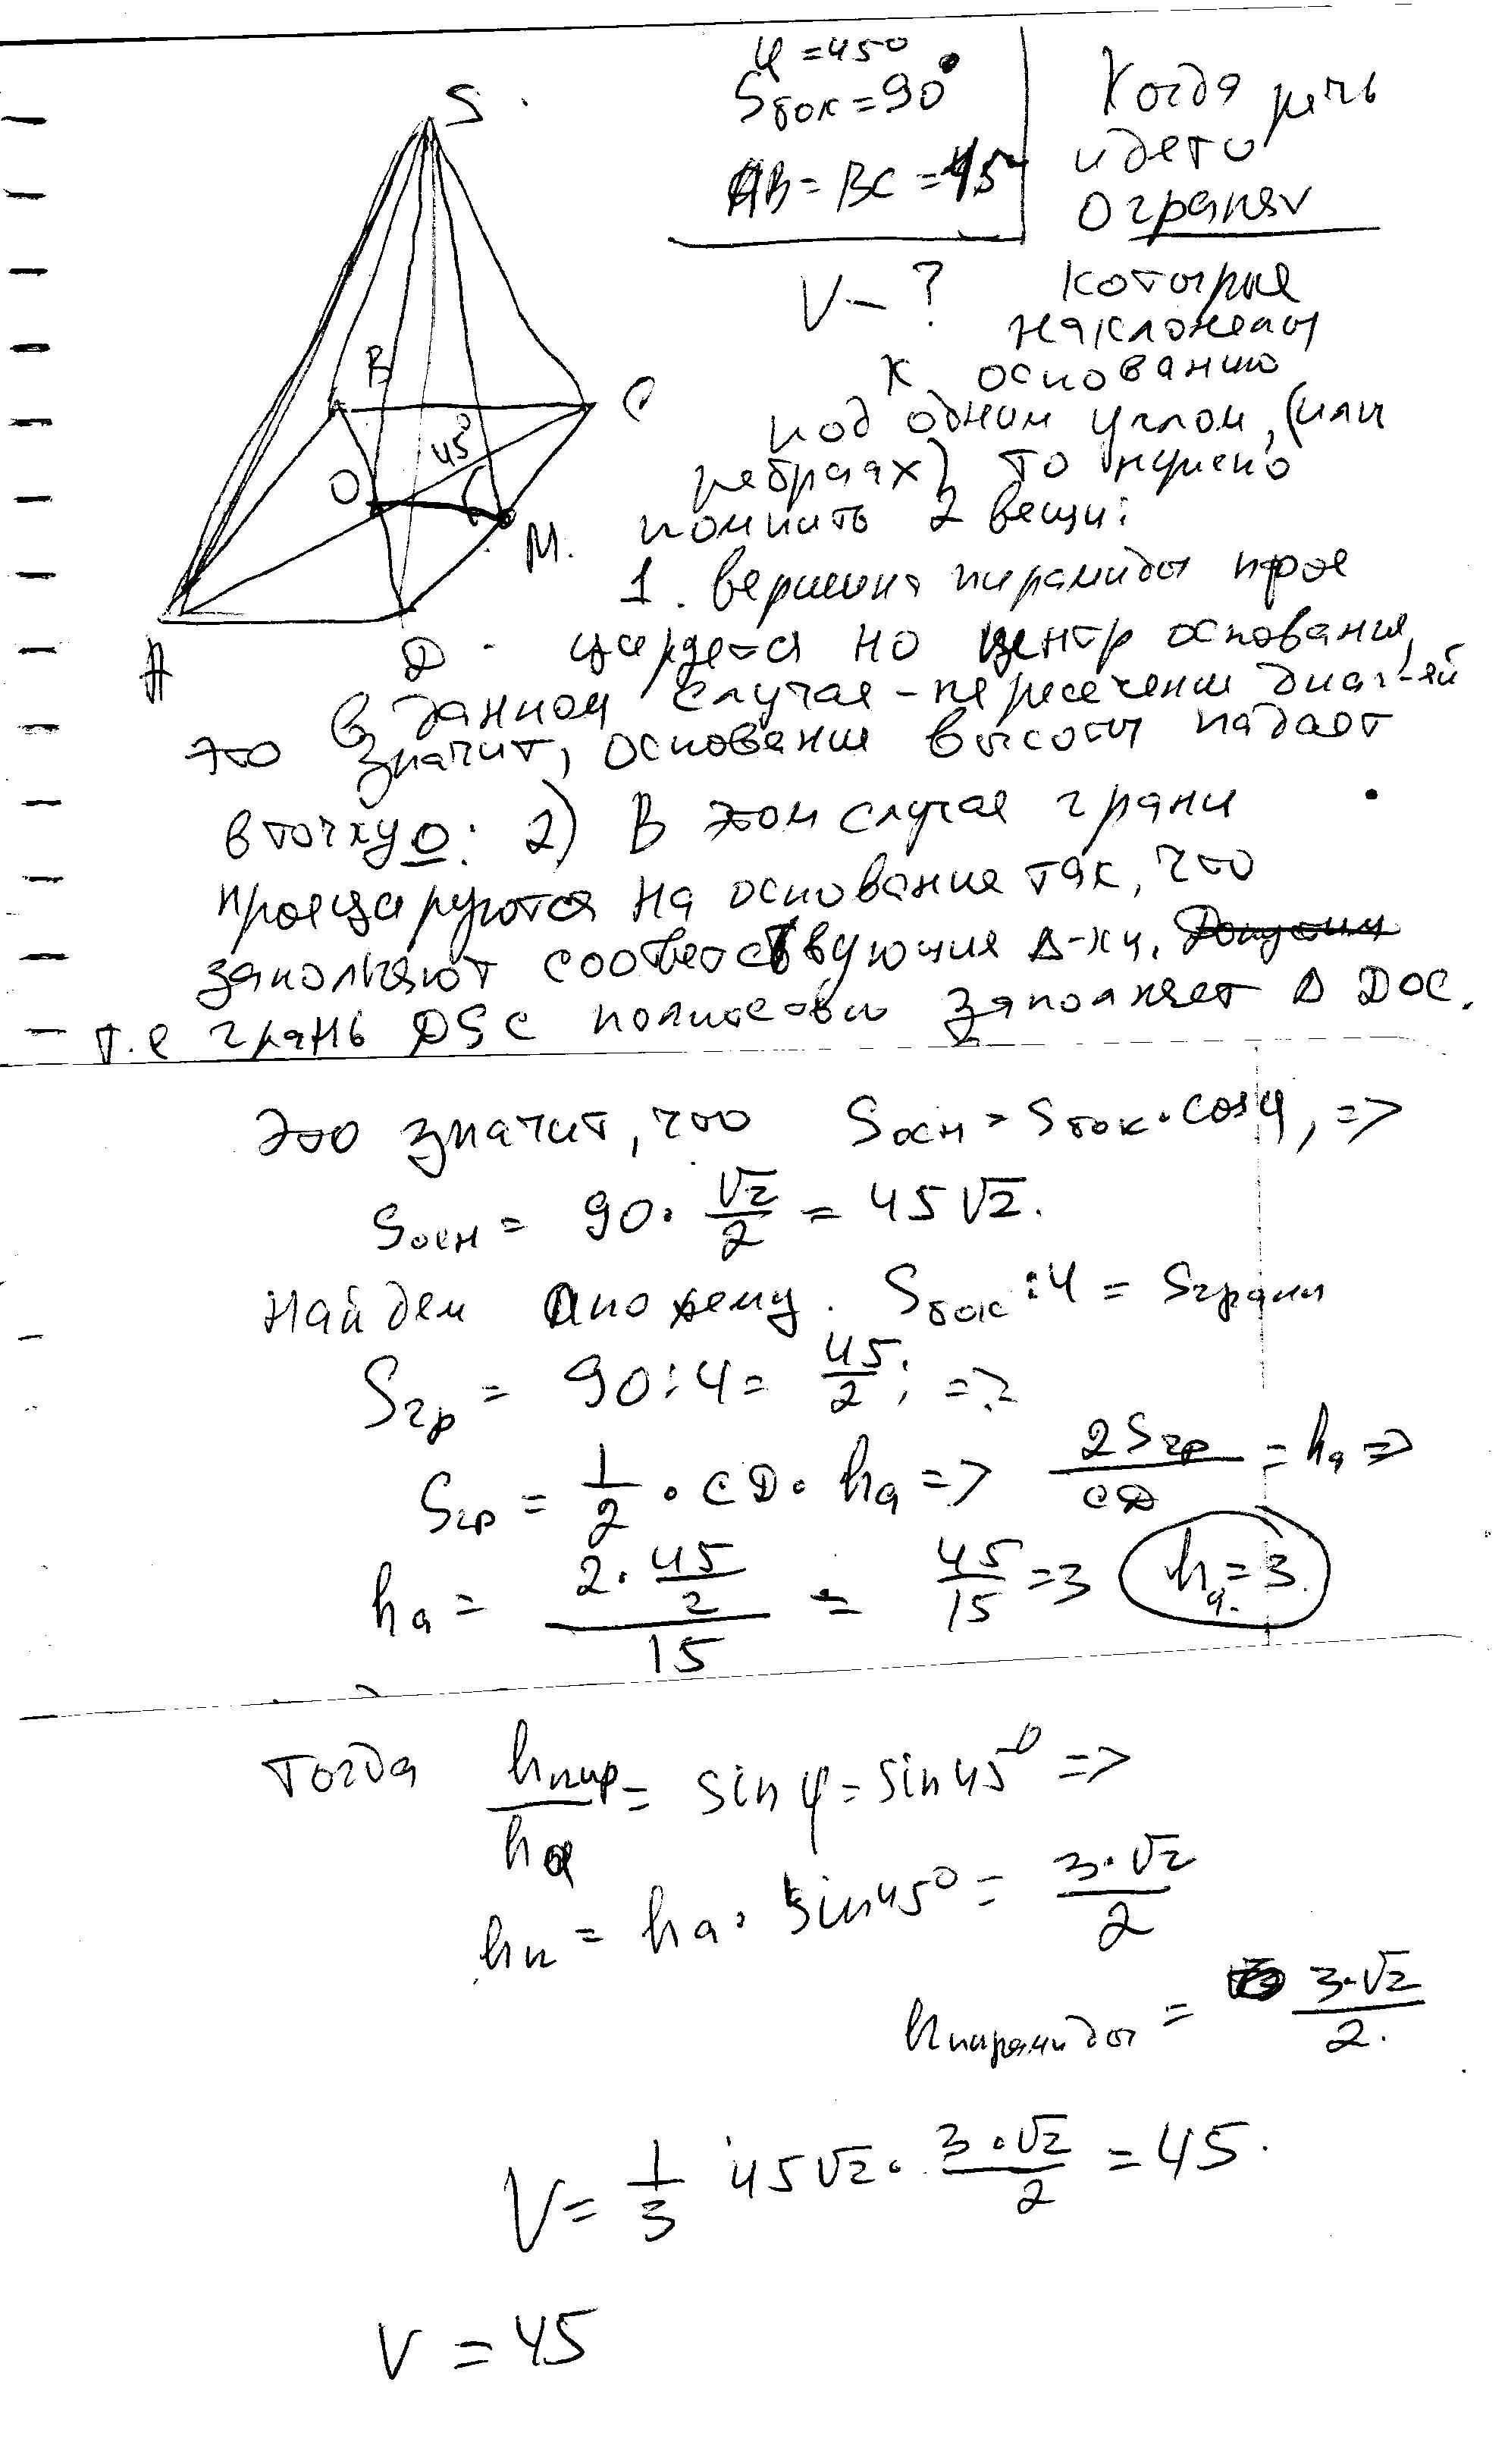 S.
φ = 45°
Sбок = 90
AB = BC = 15
V - ?
B
C
45°
O
M.
A
D
Когда речь
идет о
гранях
которые
наклонены
к основанию
под одним углом, (или
ребрах) то нужно
помнить 2 вещи:
1. вершина пирамиды прое
цируется на центр основания,
в данном случае - пересечение диаг-ей
это значит, основание высоты падает
в точку O: 2) В этом случае грани
проецируются на основание так, что
заполняют соответствующие Δ-ки.
т.е грань DSC полностью заполняет Δ DOC.
Это значит, что Sосн = Sбок · cosφ, =>
Sосн = 90 · √2/2 = 45√2.
Найдем апофему. Sбок : 4 = Sграни
Sгр = 90 : 4 = 45/2; =>
Sгр = 1/2 · CD · ha => 2Sгр/CD = ha =>
ha = (2 · 45/2)/15 = 45/15 = 3 ha = 3.
Тогда hпир/ha = sin φ = sin 45° =>
hп = ha · sin 45° = 3·√2/2
hпирамиды = 3·√2/2.
V = 1/3 45√2 · 3·√2/2 = 45.
V = 45